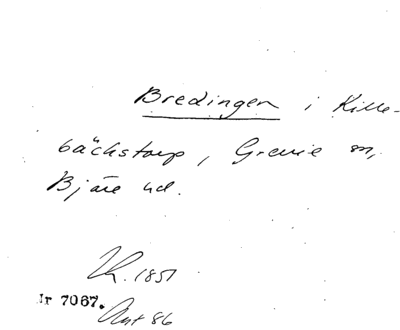 Bredingen i Kille-
bäckstorp, Grevie sn,
Bjäre hd.
1851
Nr 7067.
Avt 86